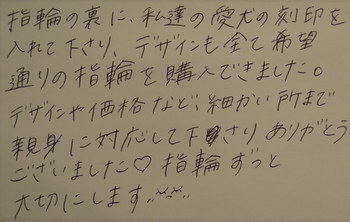 指輪の裏に、私達の愛犬の刻印を
入れて下さり、デザインも全て希望
通りの指輪を購入できました。
デザインや価格など、細かい所まで
親身に対応して下さり ありがとう
ございました♡ 指輪ずっと
大切にします